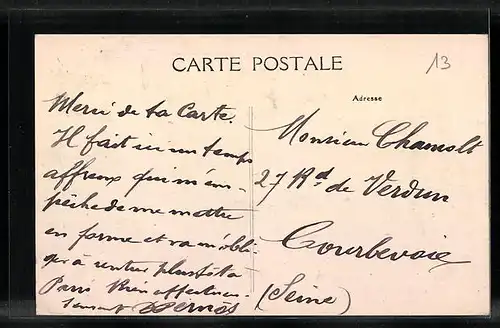 CARTE POSTALE
13
Adresse
Merci de ta Carte.
Il fait ici un temps
affreux qui m'em-
pêche de me mettre
en forme et va m'obli-
ger à rentrer plus tôt à
Paris Bien affectueu-
sement
Monsieur Chamolt
27 Bd de Verdun
Courbevoie
(Seine)